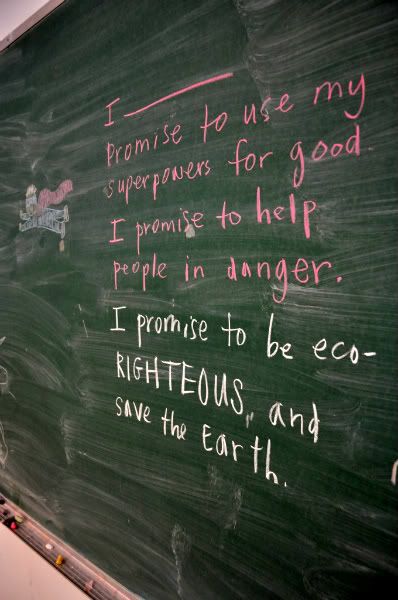 I ________
promise to use my
superpowers for good.
I promise to help
people in danger.
I promise to be eco-
RIGHTEOUS, and
save the Earth.